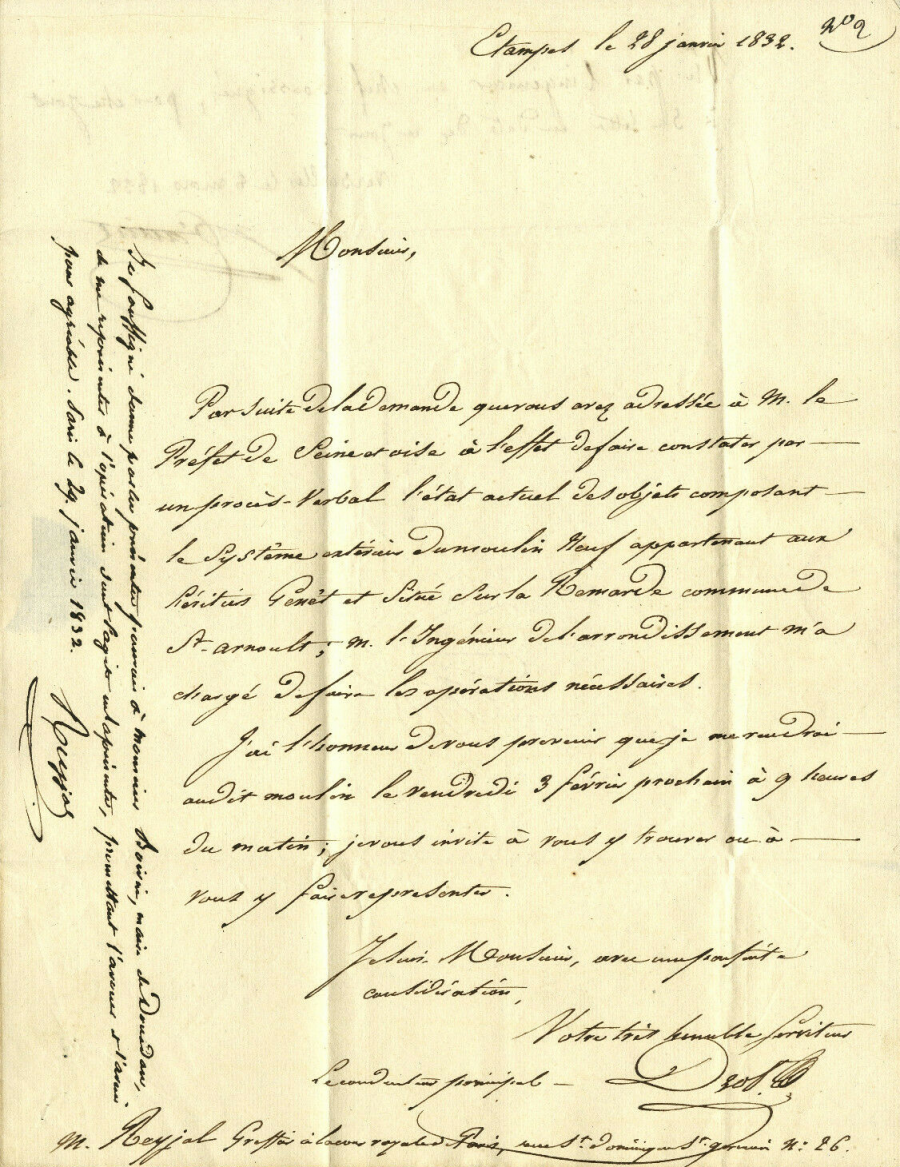 Etampes le 28 janvier 1832.
N° 2
Monsieur,
Par suite de la demande que vous avez adressée à M. le
Préfet de Seine et oise à l'effet de faire constater par
un procès-Verbal l'état actuel des objets composant
le Système extérieur du moulin Neuf appartenant aux
héritiers Genêt et Situé Sur la Remarde commune de
St-arnoult; m. l'Ingénieur de l'arrondissement m'a
chargé de faire les opérations nécessaires.
J'ai l'honneur de vous prévenir que je me rendrai
audit moulin le vendredi 3 février prochain à 9 heures
du matin; je vous invite à vous y trouver ou à
vous y faire représenter.
Je Suis Monsieur, avec une parfaite
considération,
Votre très humble Serviteur
Le conducteur principal
M. Reyjal Greffier à la cour royale de Paris, rue St. dominique St. germain N: 26.
Je Soussigné donne par les présentes pouvoir à monsieur Boivin, maire de Dourdan,
de me représenter à l'opération dont s'agit et après, promettant l'avouer et l'avoir
pour agréable. Paris le 29 janvier 1832.
Reyjal